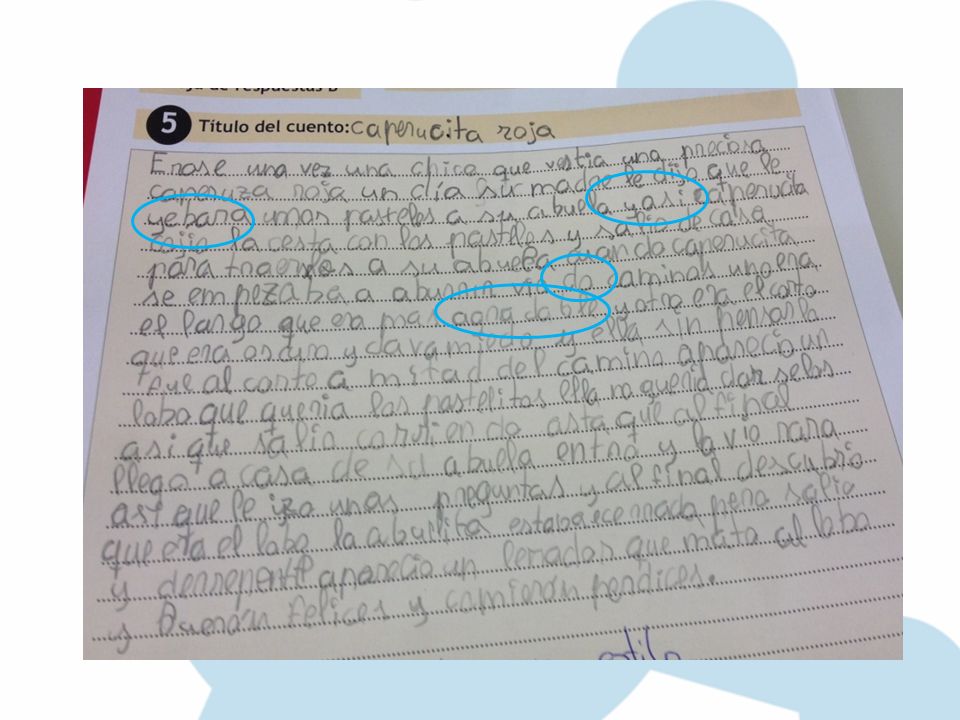 5 Título del cuento: caperucita roja
Erase una vez una chica que vestia una preciosa
caperuza roja un día su madre le dijo que le
yebara unos pasteles a su abuela yasi caperucita
cojio la cesta con los pasteles y salio de casa
para traerlos a su abuela cuando caperucita
se empezaba a aburrir vio do caminos uno era
el largo que era mas agradable y otro era el corto
que era oscuro y dava miedo y ella sin pensarlo
fue al corto a mitad del camino aparecio un
lobo que queria los pastelitos ella no queria darselos
asi que salio corriendo asta que al final
llego a casa de su abuela entró y la vio rara
asi que le izo unas preguntas y al final descubrio
que era el lobo la abuilita estaba pero salio
y derrepente aparecio un leñador que mata al lobo
y fueron felices y comieron perdices.
estilo